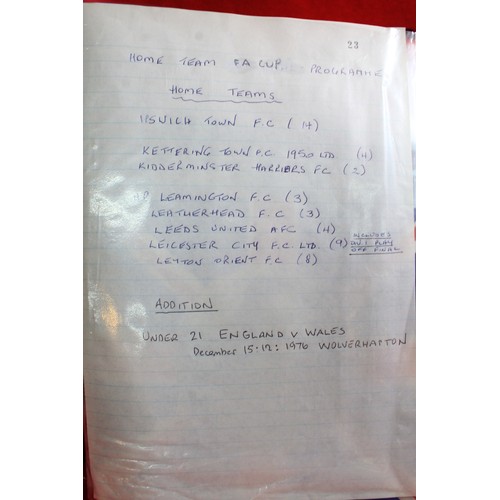 23
HOME TEAM FA CUP PROGRAMME
HOME TEAMS
IPSWICH TOWN F.C (14)
KETTERING TOWN F.C. 1950 LTD (4)
KIDDERMINSTER HARRIERS FC (2)
LEAMINGTON F.C (3)
LEATHERHEAD F.C (3)
LEEDS UNITED AFC (4)
LEICESTER CITY F.C. LTD. (9) INCLUDES DIV.1 PLAY OFF FINAL
LEYTON ORIENT F.C (8)
ADDITION
UNDER 21 ENGLAND V WALES
December 15.12: 1976 WOLVERHAPTON